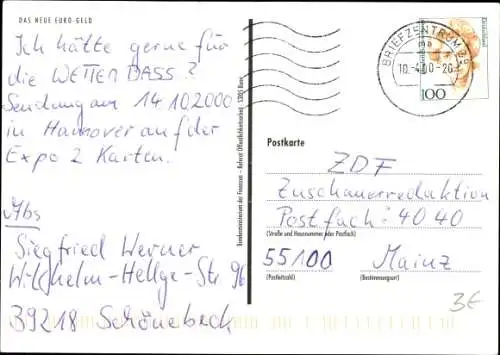 DAS NEUE EURO-GELD
Ich hätte gerne für
die WETTEN DASS?
Sendung am 14.10.2000
in Hannover auf der
Expo 2 Karten.
Abs
Siegfried Werner
Wilhelm-Hellge-Str. 96
39218 Schönebeck
Bundesministerium der Finanzen – Referat Öffentlichkeitsarbeit – 53105 Bonn
BRIEFZENTRUM 39
10.-4.00-20
100
Deutschland
Postkarte
ZDF
Zuschauerredaktion
Postfach: 40 40
(Straße und Hausnummer oder Postfach)
55100 Mainz
(Postleitzahl) (Bestimmungsort)
3€